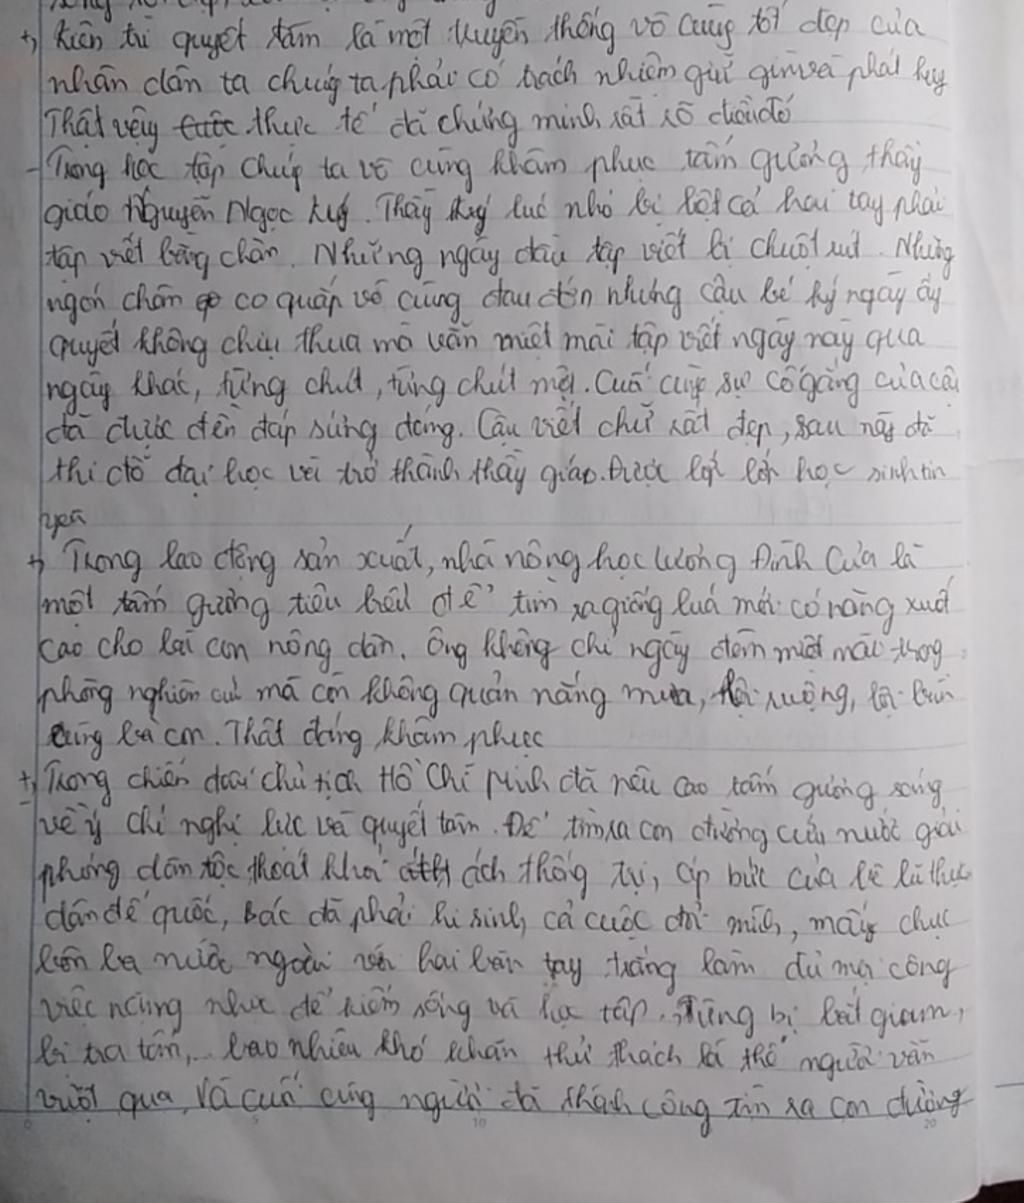 +) Kiên trì quyết tâm là một truyền thống vô cùng tốt đẹp của
nhân dân ta chúng ta phải có trách nhiệm giữ gìn và phát huy
Thật vậy thực tế đã chứng minh rất rõ điều đó
- Trong học tập chúng ta vô cùng khâm phục tấm gương thầy
giáo Nguyễn Ngọc Ký. Thầy Ký lúc nhỏ bị liệt cả hai tay phải
tập viết bằng chân. Những ngày đầu tập viết bị chuột rút. Những
ngón chân co quắp vô cùng đau đớn nhưng cậu bé Ký ngày ấy
quyết không chịu thua mà vẫn miệt mài tập viết ngày này qua
ngày khác, từng chút, từng chút một. Cuối cùng sự cố gắng của cậu
đã được đền đáp xứng đáng. Cậu viết chữ rất đẹp, sau này đã
thi đỗ đại học và trở thành thầy giáo. Được lớp lớp học sinh tin
yêu
+) Trong lao động sản xuất, nhà nông học Lương Đình Của là
một tấm gương tiêu biểu để tìm ra giống lúa mới có năng xuất
cao cho bà con nông dân. Ông không chỉ ngày đêm miệt mài trong
phòng nghiên cứu mà còn không quản nắng mưa, lội ruộng, lội bùn
cùng bà con. Thật đáng khâm phục
+) Trong chiến đấu chủ tịch Hồ Chí Minh đã nêu cao tấm gương sáng
về ý chí nghị lực và quyết tâm. Để tìm ra con đường cứu nước giải
phóng dân tộc thoát khỏi ách thống trị, áp bức của bè lũ thực
dân đế quốc, Bác đã phải hi sinh cả cuộc đời mình, mấy chục
bôn ba nước ngoài với hai bàn tay trắng làm đủ mọi công
việc nặng nhọc để kiếm sống và học tập. Từng bị bắt giam,
bị tra tấn,... bao nhiêu khó khăn thử thách là thế người vẫn
vượt qua. Và cuối cùng người đã thành công tìm ra con đường
10
20